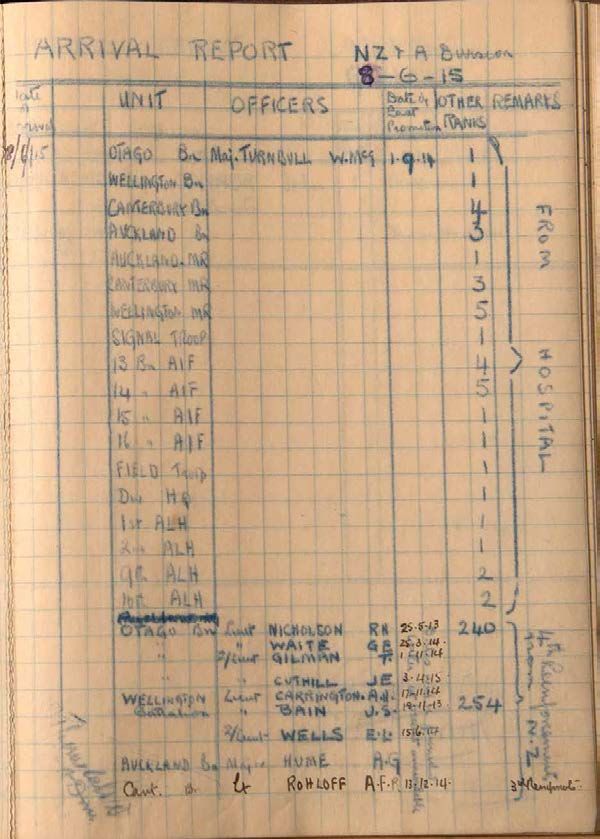 ARRIVAL REPORT NZ & A Division
8-6-15
Date of arrival UNIT OFFICERS Date of Last Promotion OTHER RANKS REMARKS
8/6/15 OTAGO Bn Maj. TURNBULL W.McG 1.9.14 1
WELLINGTON Bn 1
CANTERBURY Bn 4
AUCKLAND Bn 3
AUCKLAND. MR 1
CANTERBURY MR 3
WELLINGTON MR 5
SIGNAL TROOP 1
13 Bn AIF 4
14 " AIF 5
15 " AIF 1
16 " AIF 1
FIELD Troop 1
Div HQ 1
1st ALH 1
2nd ALH 1
9th ALH 2
10th ALH 2
FROM HOSPITAL
OTAGO Bn Lieut NICHOLSON RN 25.5.13 240
" " WAITE GE 25.3.14.
2/Lieut GILMAN T.
" CUTHILL JE 3.4.15
WELLINGTON Battalion Lieut CARRINGTON. A.H. 17.11.14 254
" BAIN J.S. 18.11.13
2/Lieut WELLS E.L.
AUCKLAND Bn Major HUME A.G
Cant. Bn Lt ROHLOFF A.F.R. 13.12.14. 3rd Reinfmts.
4th Reinforcements from N.Z.